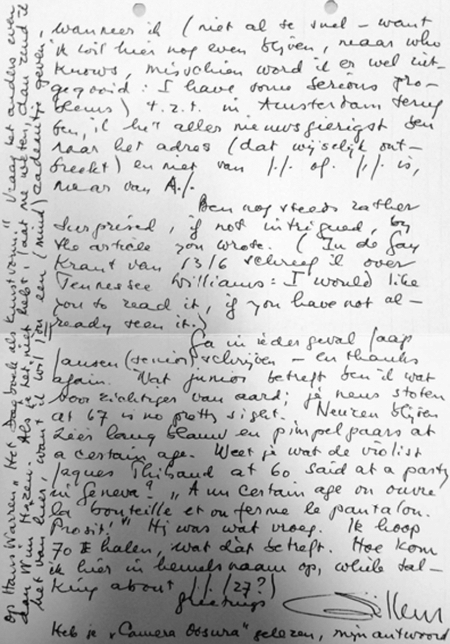 wanneer ik (niet al te snel – want
ik wil hier nog even blijven, maar who
knows, misschien word ik er wel uit-
gegooid: I have some serious pro-
blems) t.z.t. in Amsterdam terug
ben, ik het aller nieuwsgierigst ben
naar het adres (dat wijselijk ont-
breekt) en niet van J.J. of J.J. is,
maar van A.J.
Ben nog steeds rather
surprised, if not intrigued, by
the article you wrote. (In de Gay
Krant van 13/6 schreef ik over
Tennessee Williams: I would like
you to read it, if you have not al-
ready seen it.)
Ga in ieder geval Jaap
Jansen (senior) schrijven – en thanks
again. Wat junior betreft ben ik wat
voorzichtiger van aard; je neus stoten
at 67 is no pretty sight. Neuzen blijven
zéér lang blauw en pimpelpaars at
a certain age. Weet je wat de violist
Jaques Thibaud at 60 said at a party
in Geneva? "A un certain age on ouvre
la bouteille et on ferme le pantalon.
Prosit!" Hij was wat vroeg. Ik hoop
70 te halen, wat dat betreft. Hoe kom
ik hier in hemelsnaam op, while tal-
king about J.J. (27?)
Greetings
Heb je "Camera Obscura" gelezen, mijn antwoord
op Hans Warren "Het dagboek als kunstvorm." Vraag het anders even
aan Wim Hazeu. Als t het niet hebt, laat me weten, dan zend ik
het van hier. want ik wil jou een (mind) cadeautje geven.